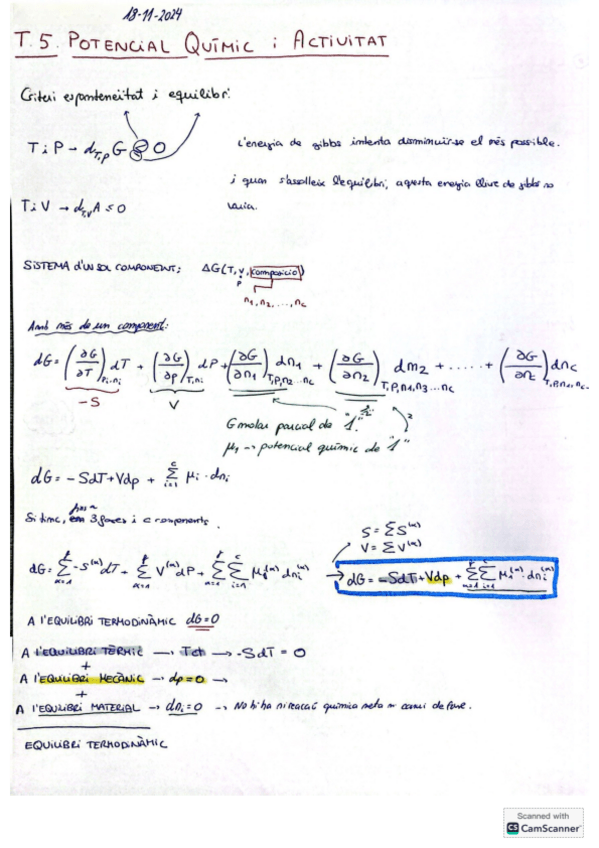 18-11-2024
T.5. POTENCIAL QUÍMIC i ACTIVITAT
Criteri espontaneïtat i equilibri:
T i P → d_T,P G ≤ 0
L'energia de gibbs intenta disminuir-se el més possible.
i quan s'assoleix l'equilibri, aquesta energia lliure de gibbs no
varia.
T i V → d_T,V A ≤ 0
SISTEMA D'UN SOL COMPONENT: ΔG(T, V, composició)
P
n1, n2, ..., nc
Amb més de un component:
dG = (∂G/∂T)P,ni dT + (∂G/∂P)T,ni dP + (∂G/∂n1)T,P,n2...nc dn1 + (∂G/∂n2)T,P,n1,n3...nc dn2 + ..... + (∂G/∂nc)T,P,n1,nc.. dnc
-S
V
G molar parcial de "1".
2
μ1 → potencial químic de "1"
dG = -SdT + Vdp + Σ(i=1, c) μi · dni
Si tinc, 3 fases i c components.
S = ΣS^(α)
V = ΣV^(α)
dG = Σ -S^(α) dT + Σ V^(α) dP + ΣΣ μi^(α) dni^(α) → dG = -SdT + Vdp + ΣΣ μi^(α) · dni^(α)
A l'EQUILIBRI TERMODINÀMIC dG=0
A l'EQUILIBRI TÈRMIC → Tct → -SdT = 0
+
A l'EQUILIBRI MECÀNIC → dp = 0 →
+
A l'EQUILIBRI MATERIAL → dni = 0 → No hi ha ni reacció química neta ni canvi de fase.
EQUILIBRI TERMODINÀMIC
Scanned with
CS CamScanner